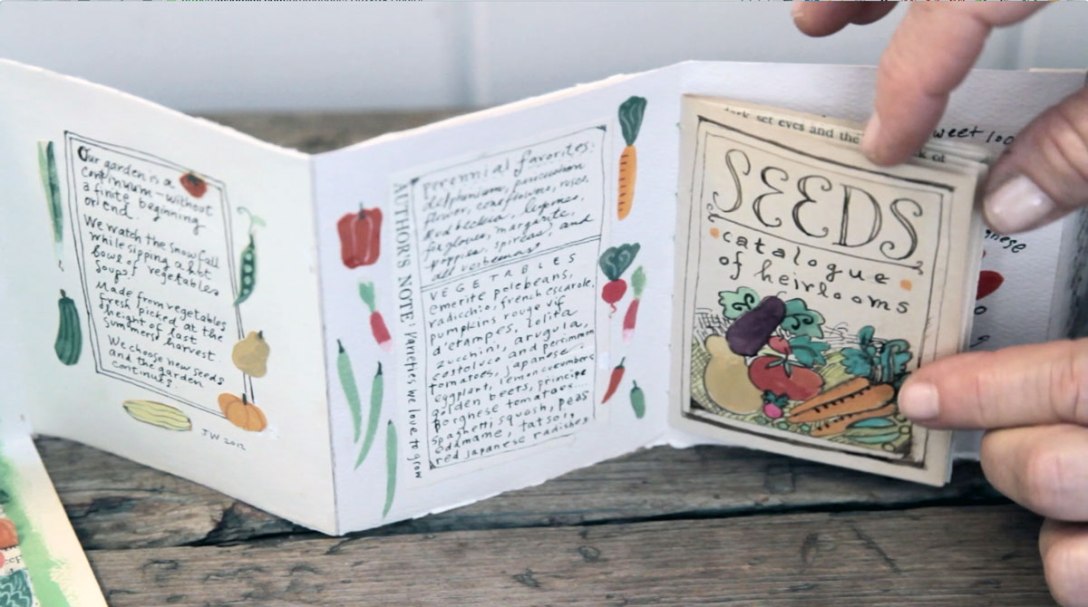 Our garden is a
continuum - without
a finite beginning
or end.
We watch the snow fall
while sipping a hot
bowl of vegetable
soup!
Made from vegetables
fresh picked at the
height of last
summers harvest
We choose new seeds
and the garden
continues
JW 2012
AUTHOR'S NOTE: Varieties we love to grow
Perennial favorites:
delphinium,
flower, coneflowers, roses,
Rudbeckia, lupines,
foxglove, margarite,
poppies, spireas, and
all verbenas!
VEGETABLES
emerite polebeans,
radicchio, french escarole,
pumpkins rouge vif
d'etampes, lolita
zucchini, arugula,
costoluto and persimmon
tomatoes, japanese
eggplant, lemon cucumbers
golden beets, principe
borghese tomatoes...
spaghetti squash, peas
edamame, tatsoi,
red japanese radishes
set eyes and the
of
SEEDS
catalogue
of heirlooms
sweet 100